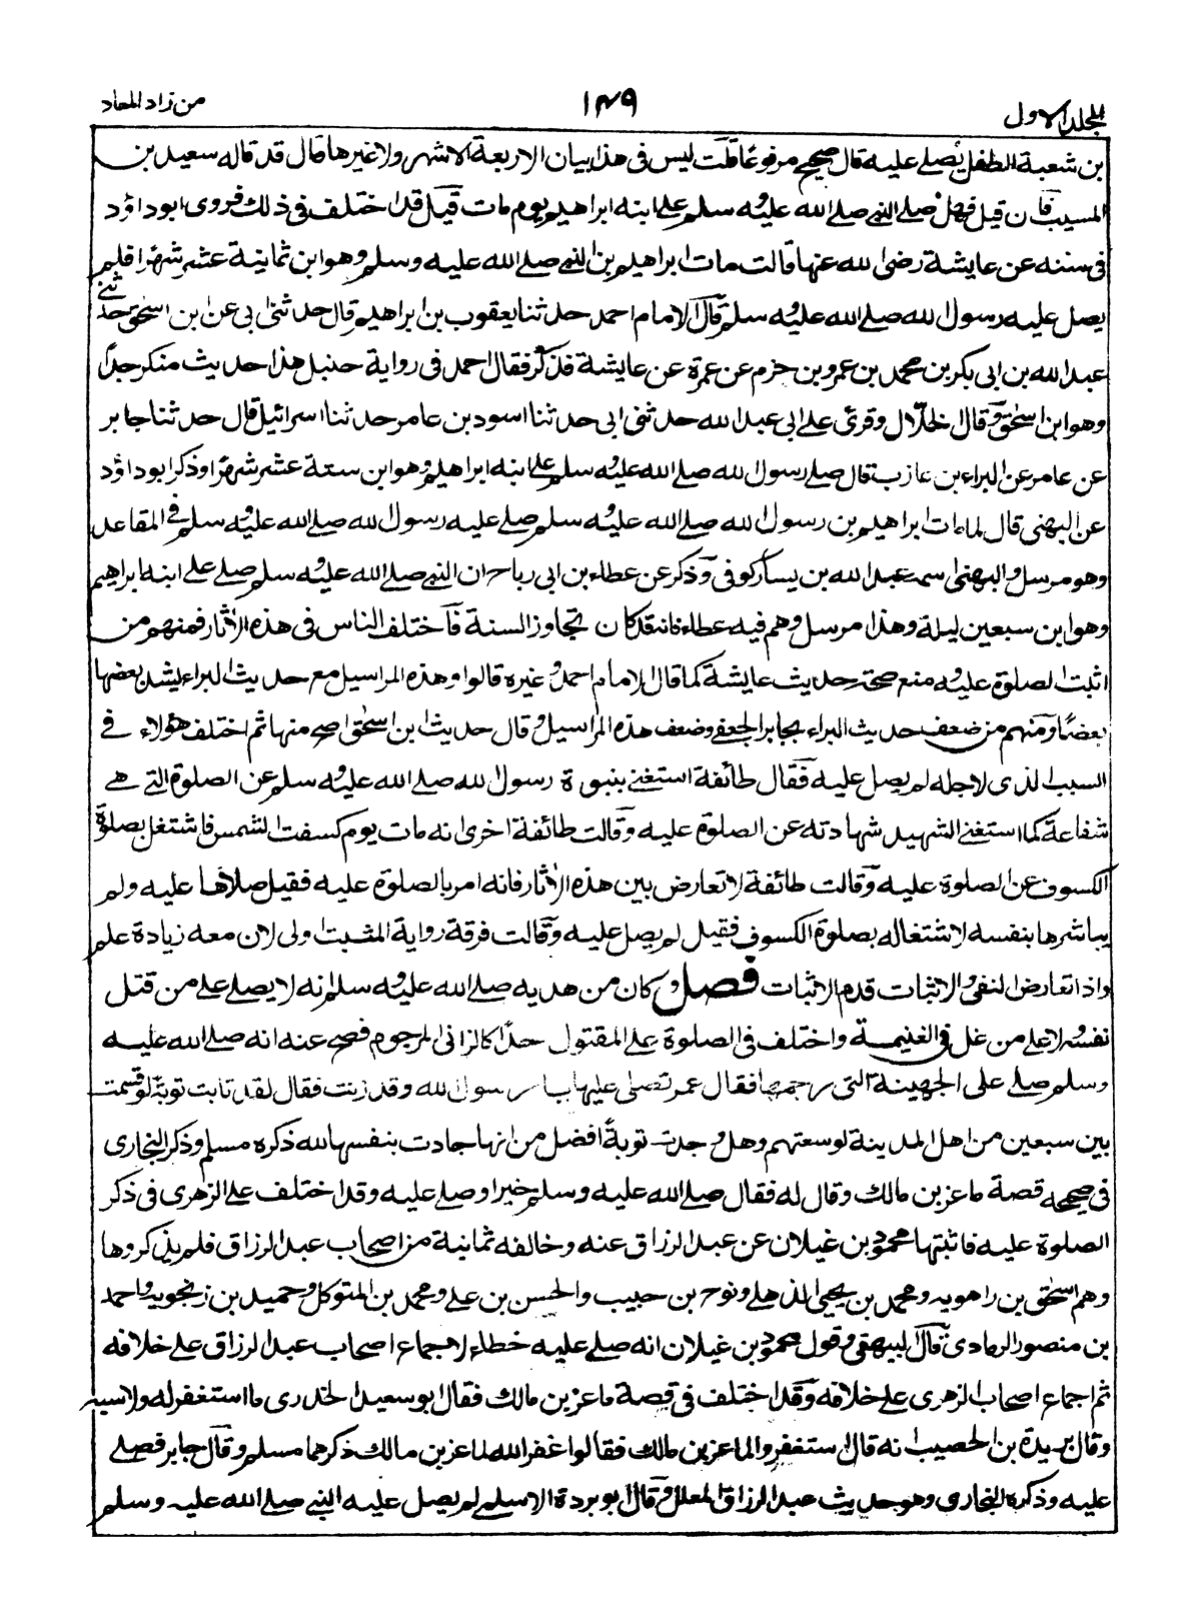 المجلد الاول
١٤٩
من زاد المعاد
بن شعبة الطفل يصلى عليه قال صحيح مرفوعا قلت ليس فى هذا بيان الاربعة الاشهر ولا غيرها قال قد قاله سعيد بن
المسيب فان قيل فهل صلى النبى صلى الله عليه وسلم على ابنه ابراهيم يوم مات قيل قد اختلف فى ذلك فروى ابوداؤد
فى سننه عن عايشة رضى الله عنها قالت مات ابراهيم بن النبى صلى الله عليه وسلم وهو ابن ثمانية عشر شهرًا فلم
يصل عليه رسول الله صلى الله عليه وسلم قال الامام احمد حدثنا يعقوب بن ابراهيم قال حدثنى ابى عن ابن اسحٰق حدثنى
عبد الله بن ابى بكر بن محمد بن عمرو بن حزم عن عمرة عن عايشة فذكره فقال احمد فى رواية حنبل هذا حديث منكر جدًا
وهو ابن اسحٰق وقال الخلّال وقرئ على ابى عبد الله حدثنى ابى حدثنا اسود بن عامر حدثنا اسرائيل قال حدثنا جابر
عن عامر عن البراء بن عازب قال صلى رسول الله صلى الله عليه وسلم على ابنه ابراهيم وهو ابن ستة عشر شهرًا وذكر ابوداؤد
عن البهى قال لما مات ابراهيم بن رسول الله صلى الله عليه وسلم صلى عليه رسول الله صلى الله عليه وسلم فى المقاعد
وهو مرسل والبهى اسمه عبد الله بن يسار كوفى وذكر عن عطاء بن ابى رباح ان النبى صلى الله عليه وسلم صلى على ابنه ابراهيم
وهو ابن سبعين ليلة وهذا مرسل وهم فيه عطاء فانه قد كان تجاوز السنة فاختلف الناس فى هذه الآثار فمنهم من
اثبت الصلوة عليه ومنع صحة حديث عايشة كما قال الامام احمد وغيره قالوا وهذه المراسيل مع حديث البراء يشد بعضها
بعضًا ومنهم من ضعف حديث البراء بجابر الجعفى وضعف هذه المراسيل وقال حديث ابن اسحٰق اصح منها ثم اختلف هٰؤلاء فى
السبب الذى لاجله لم يصل عليه فقال طائفة استغنى بنبوة رسول الله صلى الله عليه وسلم عن الصلوة التى هى
شفاعة كما استغنى الشهيد شهادته عن الصلوة عليه وقالت طائفة اخرى انه مات يوم كسفت الشمس فاشتغل بصلوة
الكسوف عن الصلوة عليه وقالت طائفة لا تعارض بين هذه الآثار فانه امر بالصلوة عليه فقيل صلاها عليه ولم
يباشرها بنفسه لاشتغاله بصلوة الكسوف فقيل لم يصل عليه وقالت فرقة رواية المثبت اولى لان معه زيادة علم
واذا تعارض النفى والاثبات قدم الاثبات فصل وكان من هديه صلى الله عليه وسلم انه لا يصلى على من قتل
نفسه ولا على من غل فى الغنيمة واختلف فى الصلوة على المقتول حدًا كالزانى المرجوم فصح عنه انه صلى الله عليه
وسلم صلى على الجهينة التى رجمها فقال عمر تصلى عليها يا رسول الله وقد زنت فقال لقد تابت توبة لو قسمت
بين سبعين من اهل المدينة لوسعتهم وهل وجدت توبةً افضل من انها جادت بنفسها لله ذكره مسلم وذكر البخارى
فى صحيحه قصة ماعز بن مالك وقال له فقال صلى الله عليه وسلم خيرا وصلى عليه وقد اختلف على الزهرى فى ذكر
الصلوة عليه فاثبتها محمود بن غيلان عن عبد الرزاق عنه وخالفه ثمانية من اصحاب عبد الرزاق فلم يذكروها
وهم اسحٰق بن راهويه ومحمد بن يحيى الذهلى ونوح بن حبيب والحسن بن على ومحمد بن المتوكل وحميد بن زنجويه واحمد
بن منصور الرمادى قال البيهقى وقول محمود بن غيلان انه صلى عليه خطاء لاجماع اصحاب عبد الرزاق على خلافه
ثم اجماع اصحاب الزهرى على خلافه وقد اختلف فى قصة ماعز بن مالك فقال ابو سعيد الخدرى ما استغفر له ولا سبه
وقال بريدة بن الحصيب انه قال استغفروا لماعز بن مالك فقالوا غفر الله لماعز بن مالك ذكرهما مسلم وقال جابر فصلى
عليه وذكره البخارى وهو حديث عبد الرزاق المعلل وقال ابو بردة الاسلمى لم يصل عليه النبى صلى الله عليه وسلم